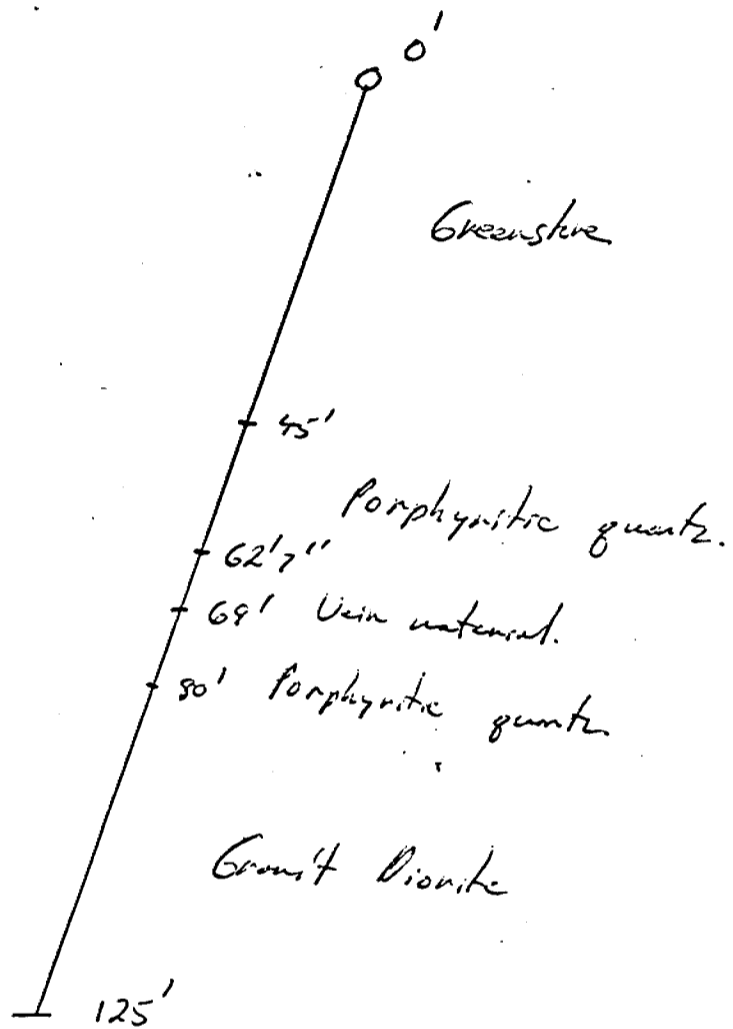 0'
Greenstone
45'
Porphyritic quartz.
62'7"
69' Vein material.
80' Porphyritic quartz
Granit Diorite
125'